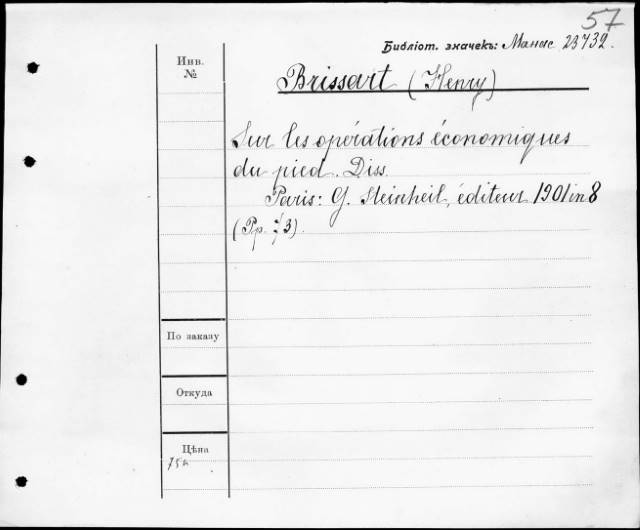 57
Библіот. значекъ: Манас 23732.
Инв.
№
Brissart (Henry)
Sur les opérations économiques
du pied. Diss.
Paris: G. Steinheil, éditeur 1901 in 8
(Pp. 73).
По заказу
Откуда
Цѣна
75к